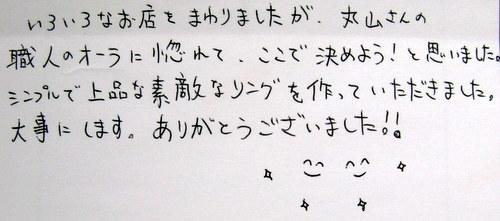 いろいろなお店をまわりましたが、丸山さんの
職人のオーラに惚れて、ここで決めよう!と思いました。
シンプルで上品な素敵なリングを作っていただきました。
大事にします。ありがとうございました!!